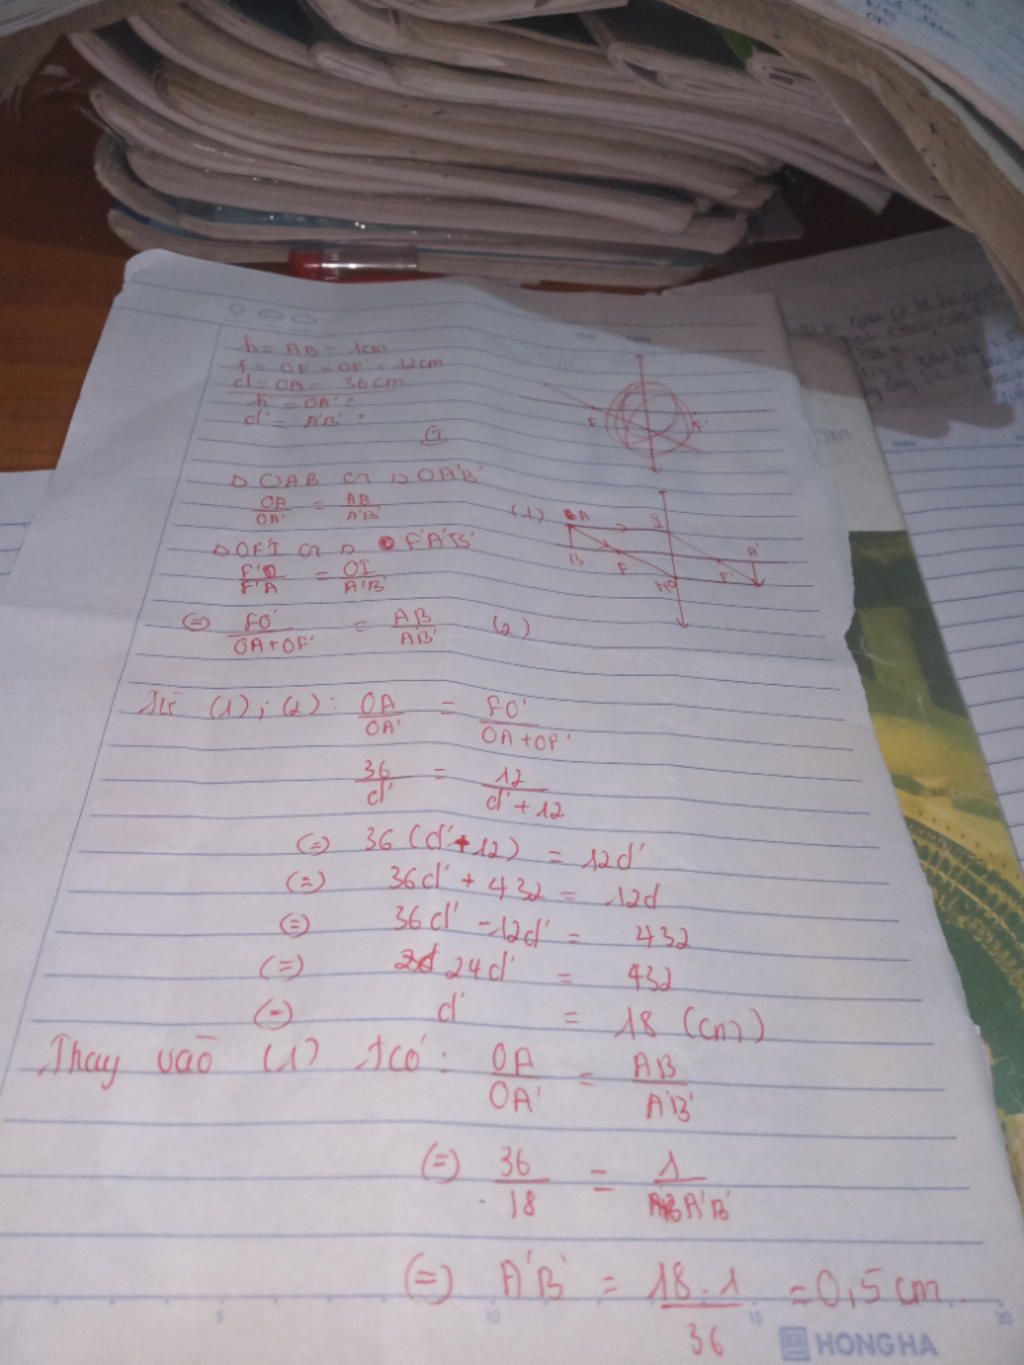 h = AB = 1cm
f = OF = OF' = 12cm
d = OA = 36cm
h' = OA' ?
d' = A'B' ?
G
F F'
Δ OAB ∽ Δ OA'B'
OA/OA' = AB/A'B' (1)
Δ OF'I ∽ Δ F'A'B'
F'O/F'A = OI/A'B'
A I A'
B F F'
(=) FO'/OA+OF' = AB/AB' (2)
Từ (1); (2): OA/OA' = FO'/OA+OF'
36/d' = 12/d'+12
(=) 36(d'+12) = 12d'
(=) 36d' + 432 = 12d
(=) 36d' - 12d' = 432
(=) 24d' = 432
(=) d' = 18 (cm)
Thay vào (1) tcó: OA/OA' = AB/A'B'
(=) 36/18 = 1/A'B'
(=) A'B' = 18.1/36 = 0,5cm.
5 10 15 20
HONG HA